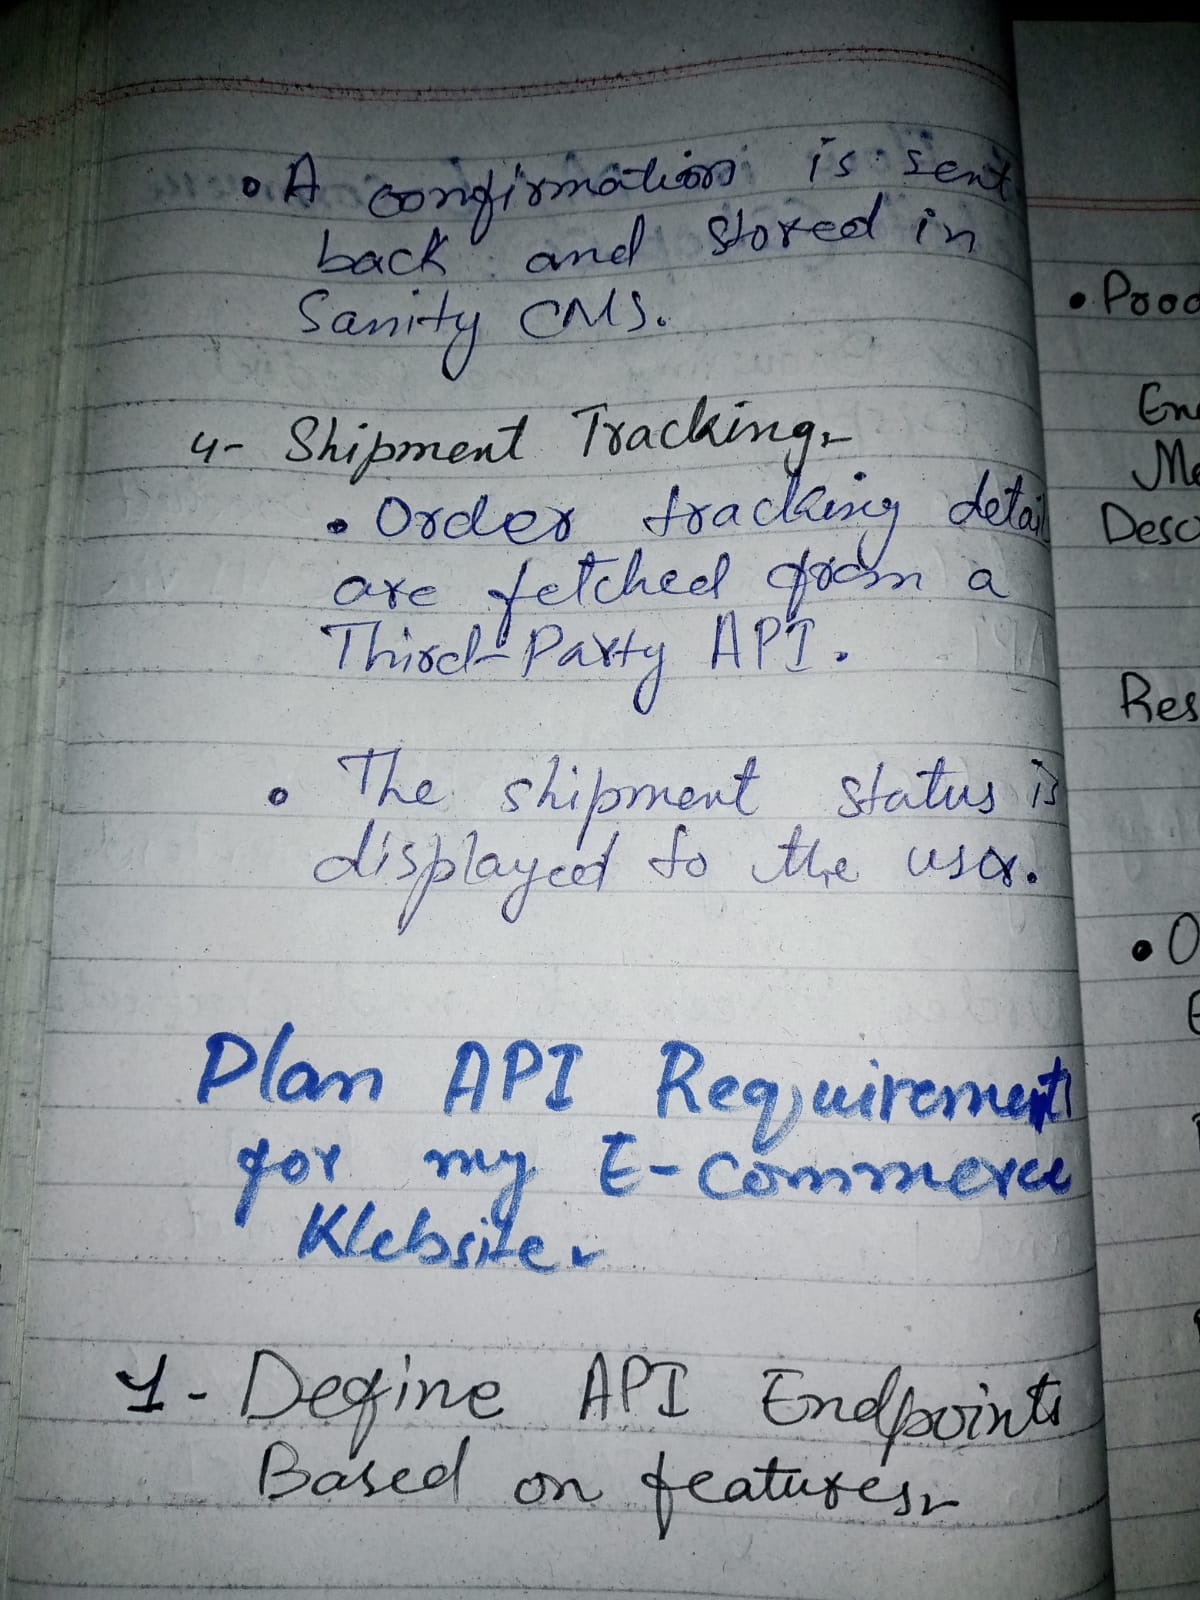 • A confirmation is sent
back and stored in
Sanity CMS.
4- Shipment Tracking:-
• Order tracking detail
are fetched from a
Third-Party API.
• The shipment status is
displayed to the user.
Plan API Requirements
for my E-Commerce
Website:-
1- Define API Endpoints
Based on features:-
• Prod
En
Me
Desc
Res
• O
E